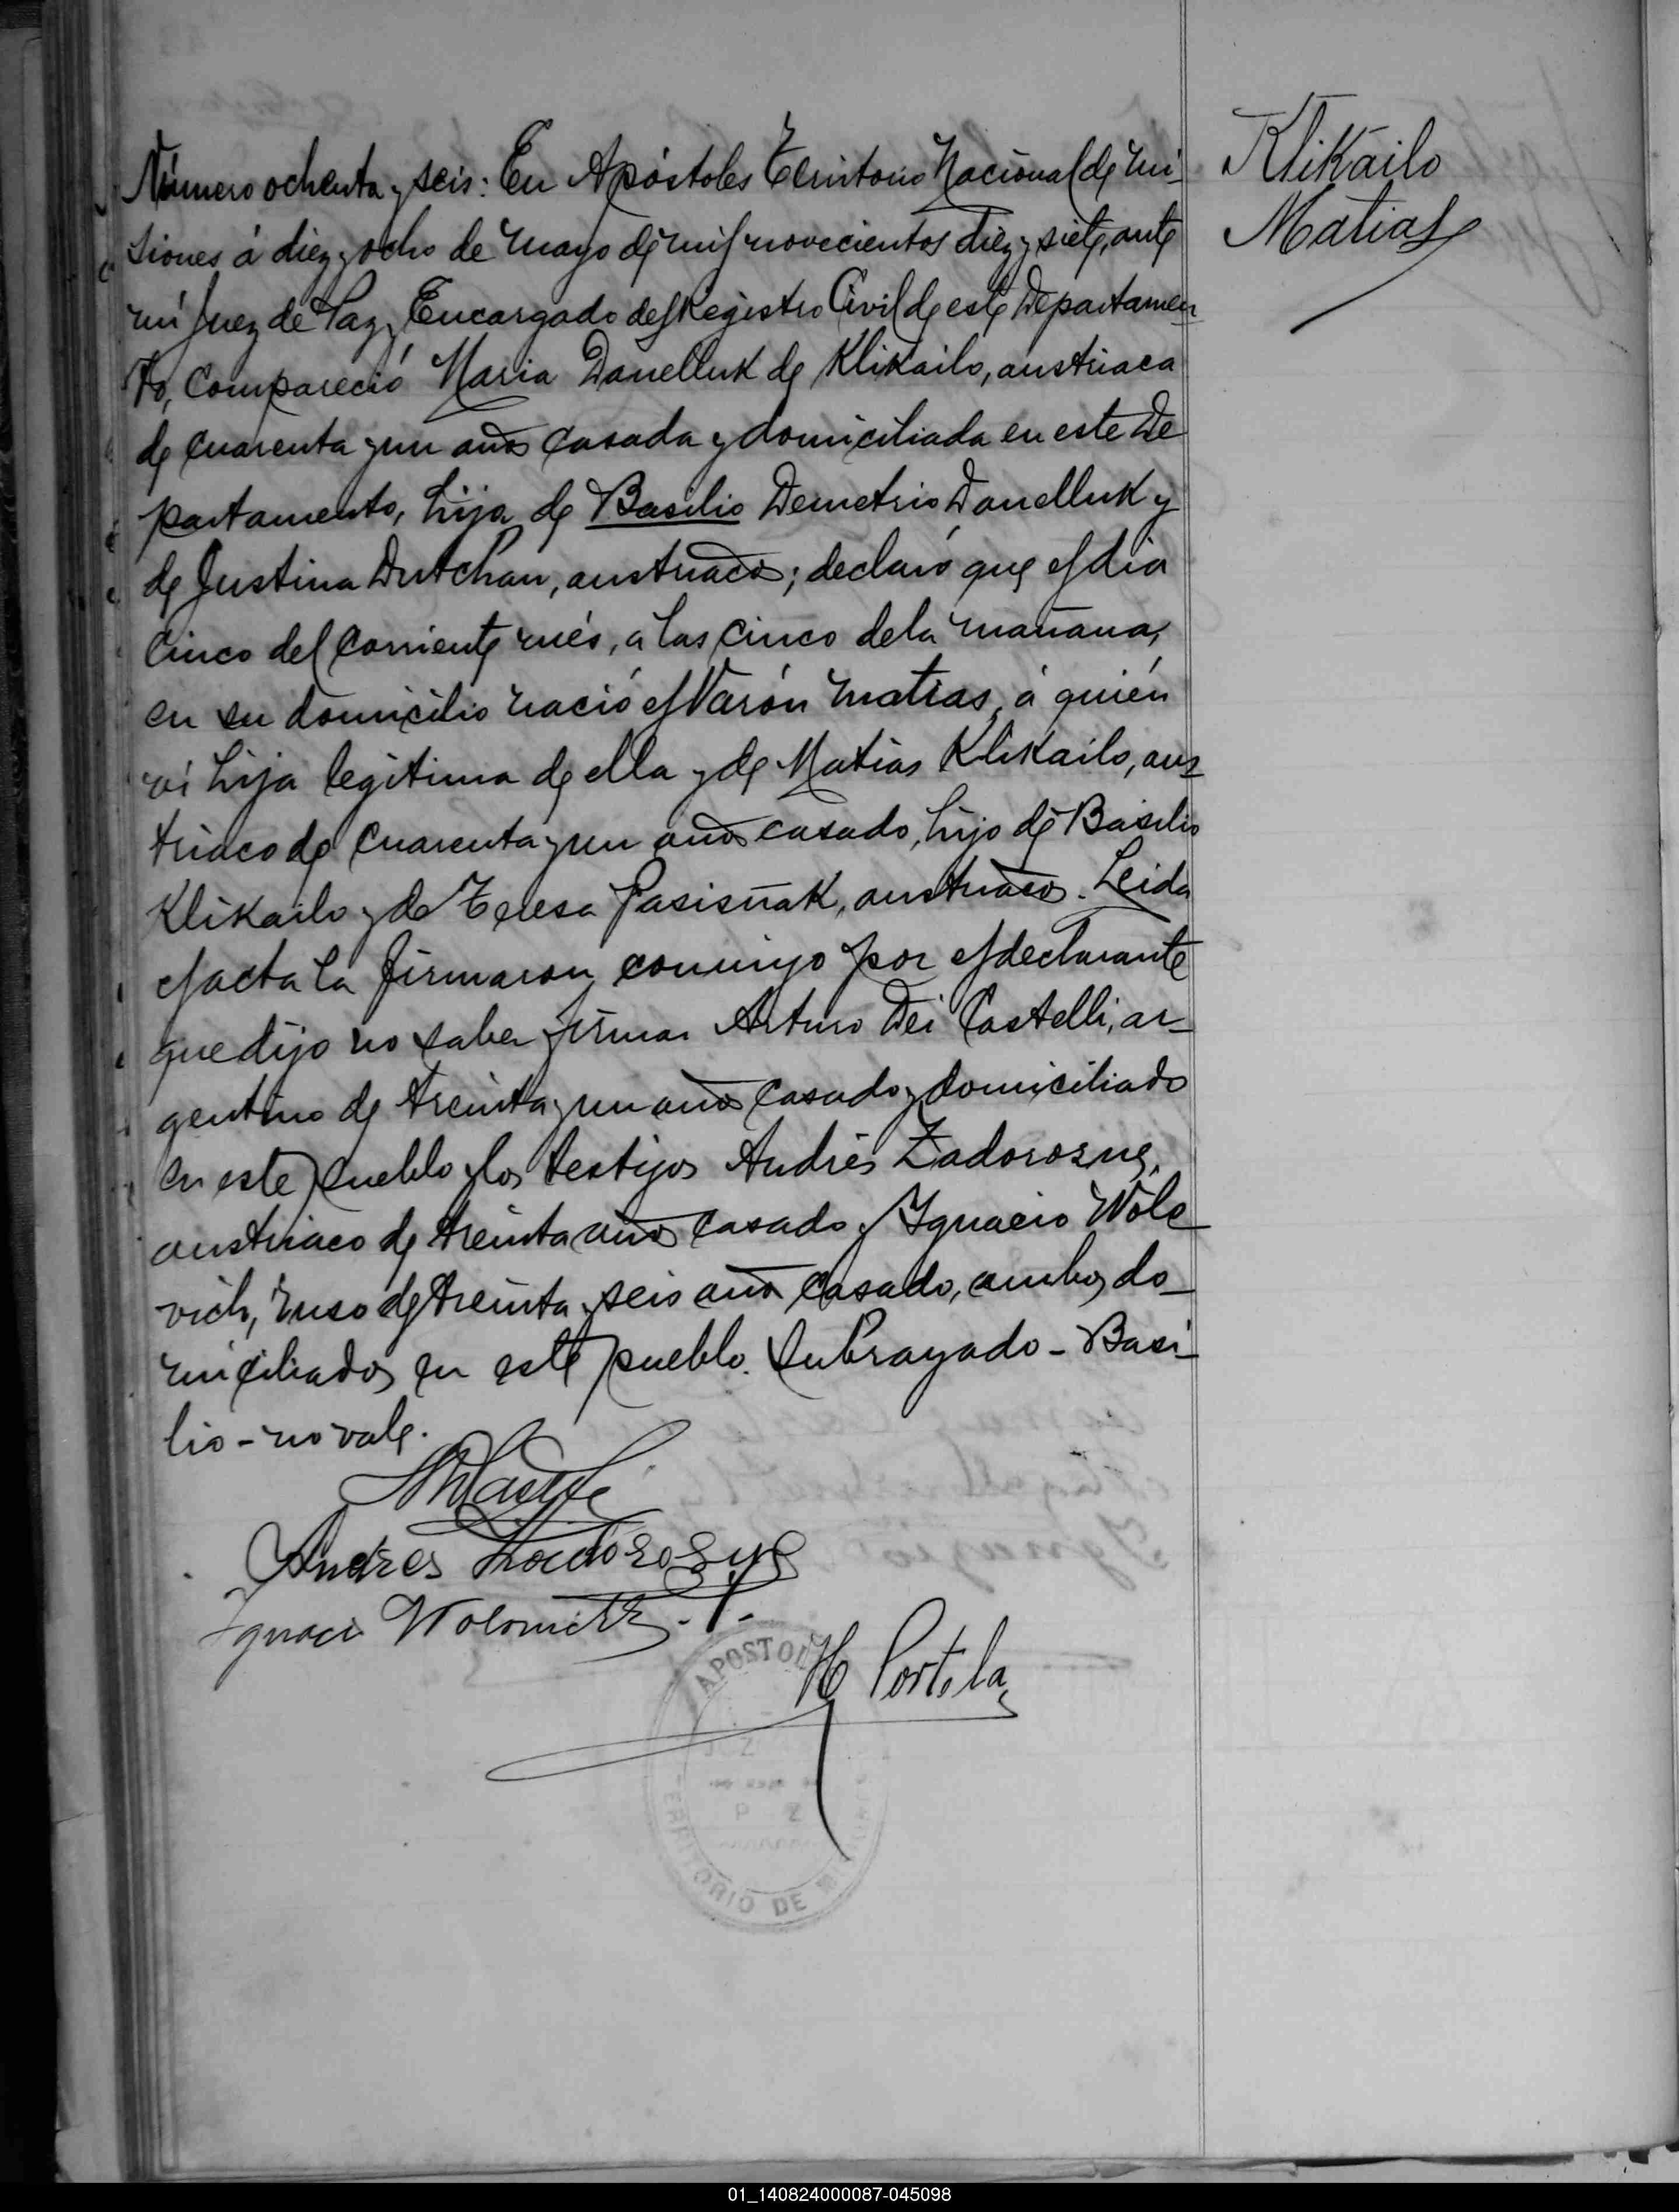 Número ochenta y seis: En Apóstoles Territorio Nacional de Mi-
siones á diez y ocho de Mayo de mil novecientos diez y siete, ante
mí Juez de Paz, Encargado del Registro Civil de este Departamen
to, Compareció Maria Danelluk de Klikailo, austriaca
de cuarenta y un años casada y domiciliada en este De
partamento, hija de Basilio Demetrio Danelluk y
de Justina Dutchan, austriacos; declaró que el dia
cinco del corriente més, a las cinco de la mañana,
en su domicilio nació el Varón Matias, á quién
ví hija legitima de ella y de Matias Klikailo, aus
triaco de cuarenta y un años casado, hijo de Basilio
Klikailo y de Teresa Pasisñak, austriacos. Leida
el acta la firmaron conmigo por el declarante
que dijo no saber firmar Arturo Dei Castelli, ar-
gentino de treinta y un años casado y domiciliado
en este pueblo y los testigos Andrés Zadorosne,
austriaco de treinta años casado y Ygnacio Wolo
vich, ruso de treinta y seis años casado, ambos do-
miciliados en este pueblo. Subrayado - Basi-
lio - no vale.
Klikailo
Matias
Andres
Ignaci
H Portela
APOSTOL
J Z
P Z
TERRITORIO DE
01_140824000087-045098